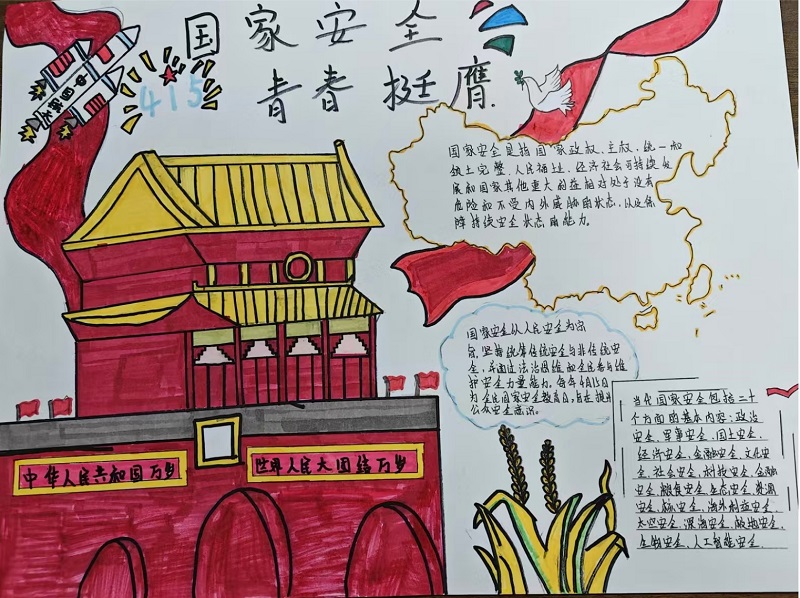 国家安全
青春挺膺
415
中国航天
国家安全是指国家政权、主权、统一和
领土完整、人民福祉、经济社会可持续发
展和国家其他重大利益相对处于没有
危险和不受内外威胁的状态,以及保
障持续安全状态的能力。
国家安全以人民安全为宗
旨,坚持统筹传统安全与非传统安
全,并通过法治思维和全民参与维
护安全力量能力。每年4月15日
为全民国家安全教育日,旨在提升
公众安全意识。
当代国家安全包括二十
个方面的基本内容:政治
安全、军事安全、国土安全、
经济安全、金融安全、文化安
全、社会安全、科技安全、金融
安全、粮食安全、生态安全、资源
安全、核安全、海外利益安全、
太空安全、深海安全、极地安全、
生物安全、人工智能安全、
中华人民共和国万岁
世界人民大团结万岁